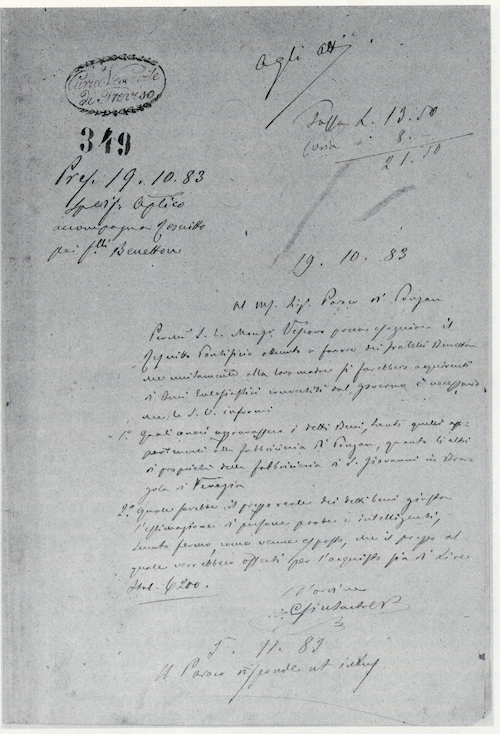 agli atti
Curia Vescovile
di Treviso
Tassa L. 13.50
Curia " 8.-
21.50
349
Pres. 19.10.83
Sped. Aplico
accompagna Rescritto
pei f.lli Benetton
19. 10. 83
Al m. Rev. Parroco di Ponzan
Perchè S. E. Mons. Vescovo possa eseguire il
Rescritto Pontificio ottenuto a favore dei fratelli Benetton
che unitamente alla loro madre si farebbero acquirenti
di Beni Ecclesiastici convertiti dal governo è necessario
che la S. V. informi
1.° quali oneri aggravassero i detti Beni, tanto quelli ap-
partenenti alla fabbriceria di Ponzan, quanto li altri
di proprietà della fabbriceria di S. Giovanni in Bra-
gola di Venezia
2.° quale sarebbe il prezzo reale dei detti beni giusta
l'estimazione di persone probe e intelligenti,
tenuto fermo, come venne esposto, che il prezzo al
quale verrebbero offerti per l'acquisto sia di Lire
Ital. 6200.
D'ordine
5. 11. 83
Il Parroco risponde